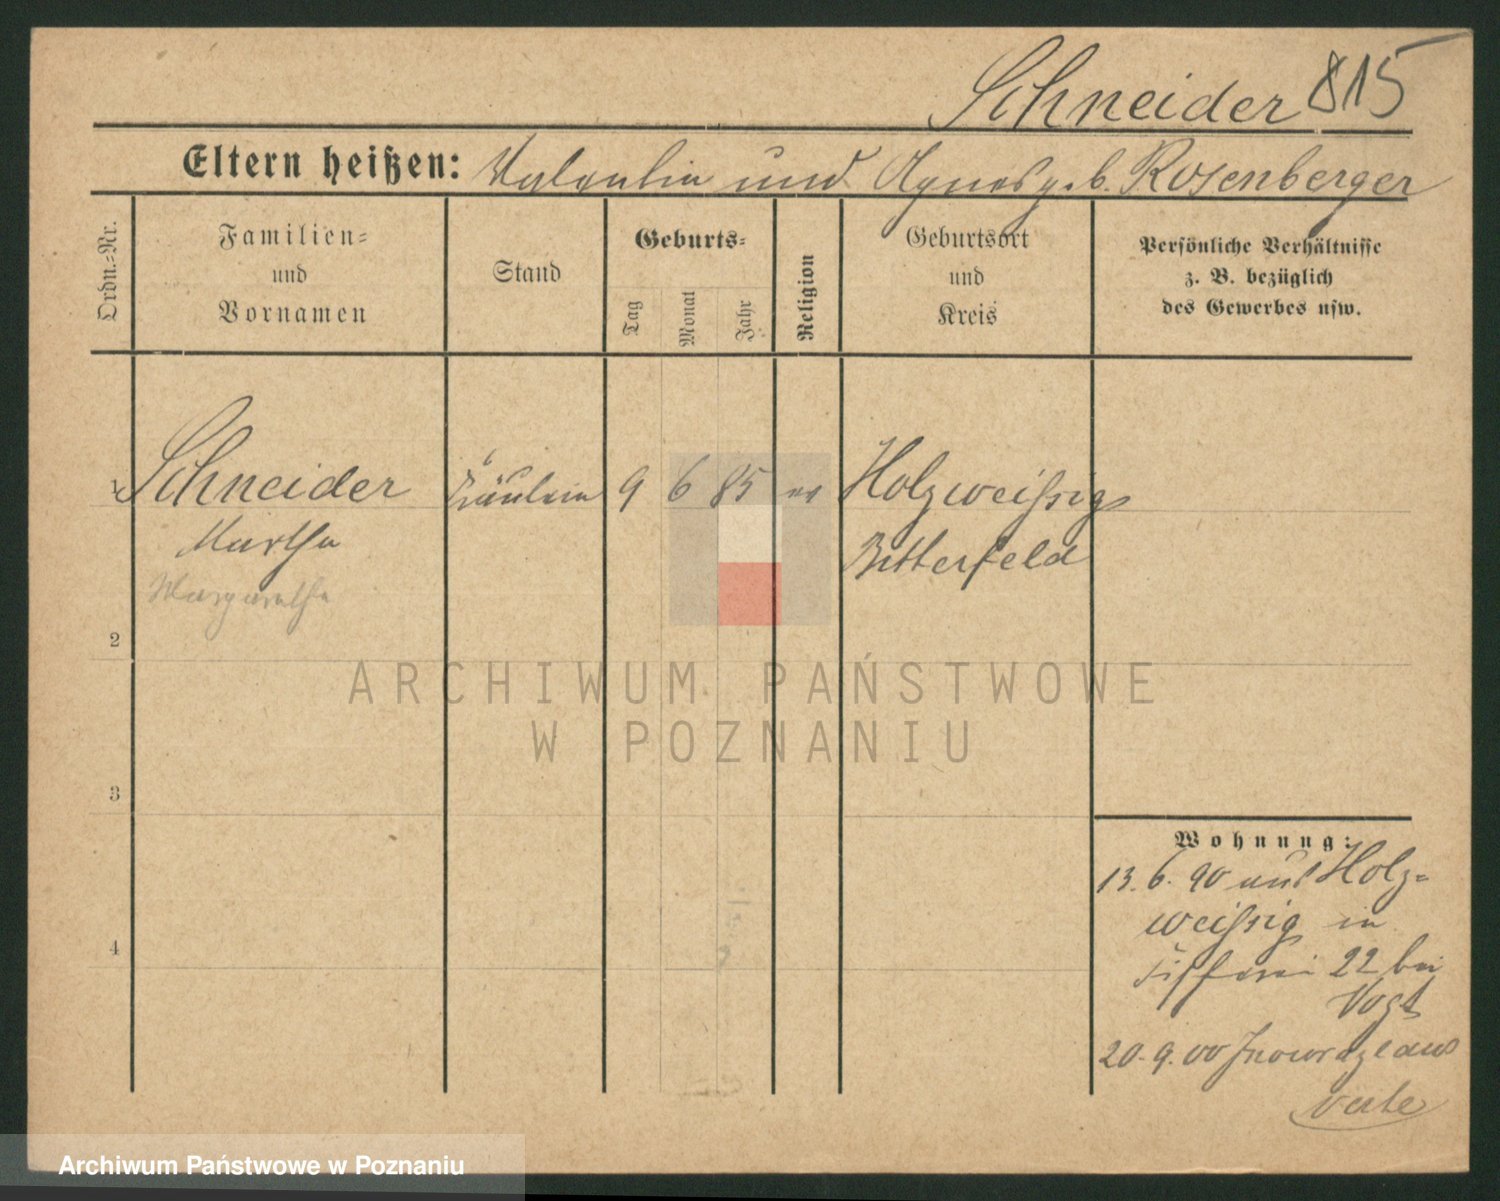 Schneider 815
Eltern heißen: Valentin und Agnes g. b. Rosenberger
Ordn.=Nr.
Familien=
und
Vornamen
Stand
Geburts=
Tag
Monat
Jahr
Religion
Geburtsort
und
Kreis
Persönliche Verhältnisse
z. B. bezüglich
des Gewerbes usw.
1 Schneider Fräulein 9 6 85 ev Holzweißig
Martha Bitterfeld
Margarethe
2
ARCHIWUM PAŃSTWOWE
W POZNANIU
3
Wohnung:
13. 6. 90 aus Holz=
weißig in
Fischerei 22 bei
Vogt
4
20. 9. 00 Inowrazlaw
verte
Archiwum Państwowe w Poznaniu